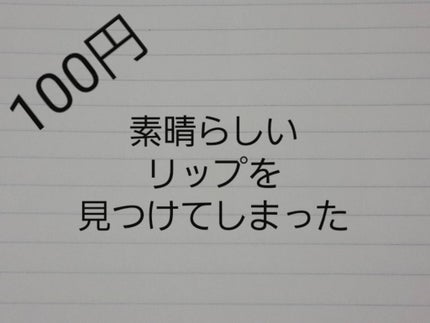 100円
素晴らしい
リップを
見つけてしまった